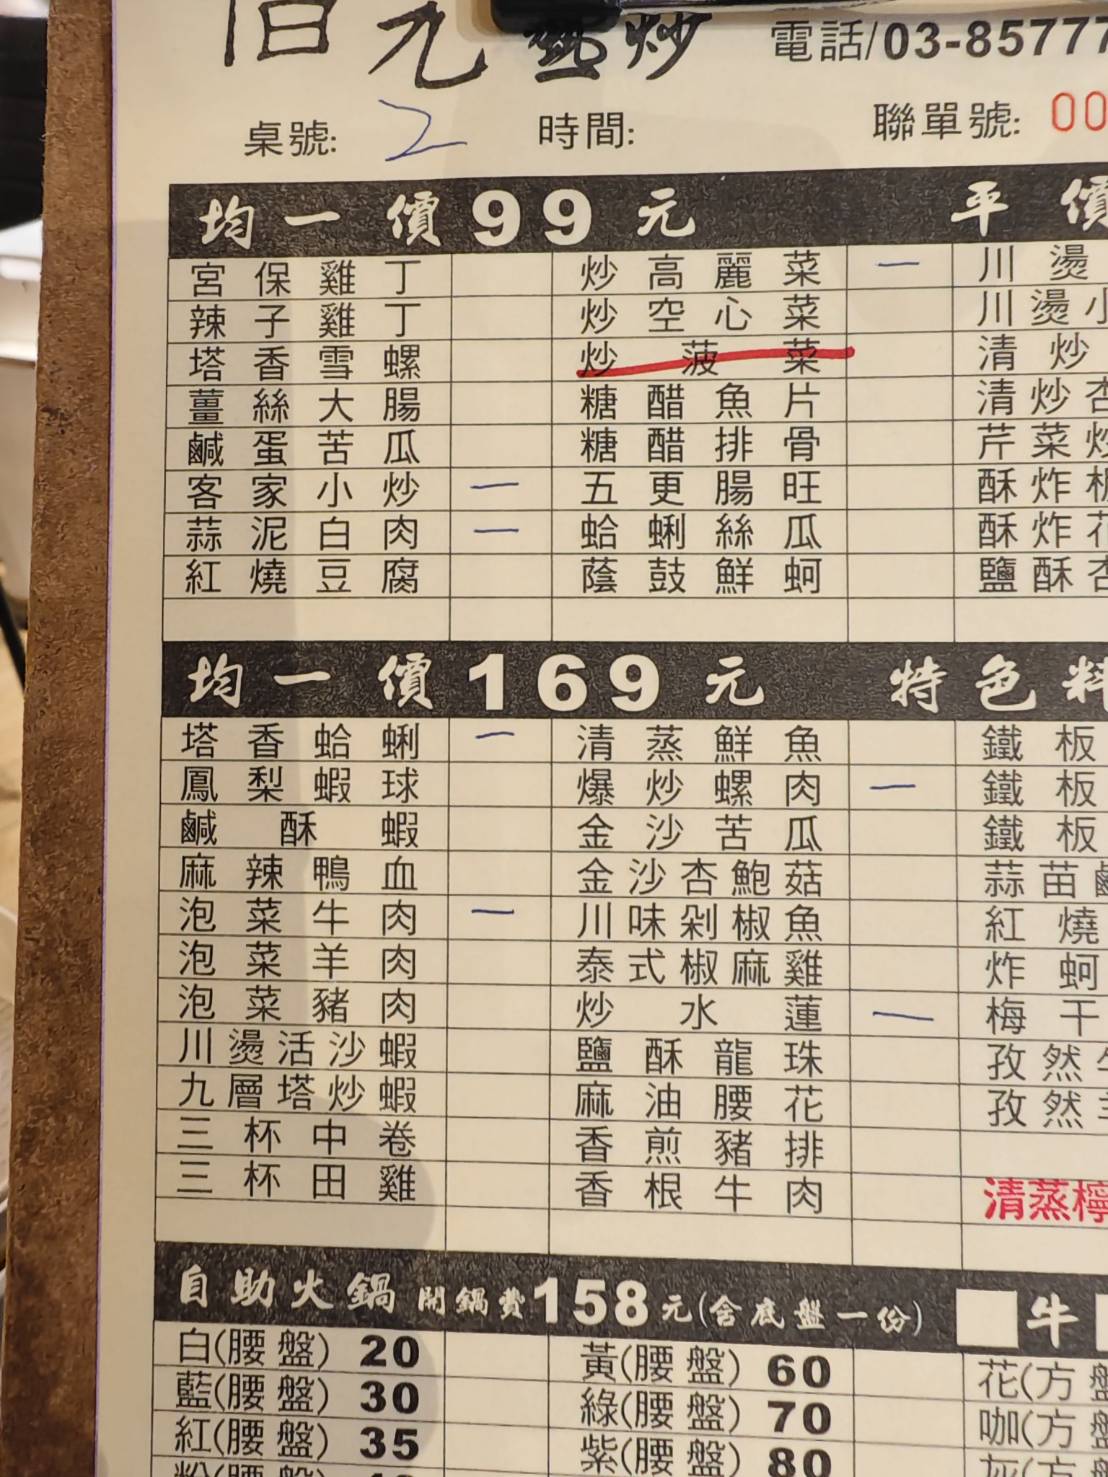 佰元熱炒 電話/03-85777
桌號: 2 時間: 聯單號: 00
均一價99元 平價
宮保雞丁 炒高麗菜 一 川燙
辣子雞丁 炒空心菜 川燙小
塔香雪螺 炒菠菜 清炒
薑絲大腸 糖醋魚片 清炒杏
鹹蛋苦瓜 糖醋排骨 芹菜炒
客家小炒 一 五更腸旺 酥炸
蒜泥白肉 一 蛤蜊絲瓜 酥炸花
紅燒豆腐 蔭鼓鮮蚵 鹽酥杏
均一價169元 特色料
塔香蛤蜊 一 清蒸鮮魚 鐵板
鳳梨蝦球 爆炒螺肉 一 鐵板
鹹酥蝦 金沙苦瓜 鐵板
麻辣鴨血 金沙杏鮑菇 蒜苗鹹
泡菜牛肉 一 川味剁椒魚 紅燒
泡菜羊肉 泰式椒麻雞 炸蚵
泡菜豬肉 炒水蓮 一 梅干
川燙活沙蝦 鹽酥龍珠 孜然牛
九層塔炒蝦 麻油腰花 孜然羊
三杯中卷 香煎豬排
三杯田雞 香根牛肉 清蒸檸
自助火鍋 開鍋費158元(含底盤一份) 牛
白(腰盤) 20 黃(腰盤) 60 花(方盤
藍(腰盤) 30 綠(腰盤) 70 咖(方盤
紅(腰盤) 35 紫(腰盤) 80 灰(方盤
粉(腰盤) 40